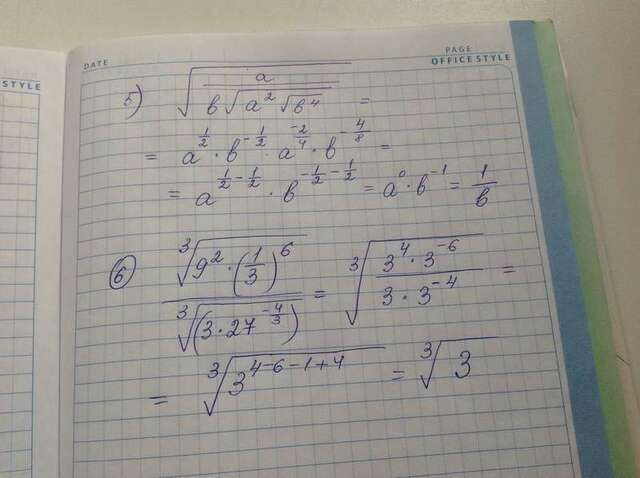 STYLE
DATE
PAGE
OFFICE STYLE
5) √(a / (b√(a² √(b⁴)))) =
= a^(1/2) · b^(-1/2) · a^(-2/4) · b^(-4/8) =
= a^(1/2-1/2) · b^(-1/2-1/2) = a⁰ · b⁻¹ = 1/b
6) ∛(9² · (1/3)⁶) / ∛((3 · 27^(-4/3))) = ∛((3⁴ · 3⁻⁶) / (3 · 3⁻⁴)) =
= ∛(3^(4-6-1+4)) = ∛3